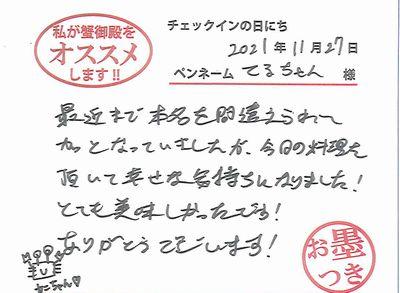 私が蟹御殿を
オススメ
します!!
チェックインの日にち
2021年11月27日
ペンネーム てるちゃん 様
最近まで本名を間違えられ
カッとなっていましたが、今日の料理を
頂いて幸せな気持ちになりました!
とても美味しかったです!
ありがとうございます!
お墨
つき